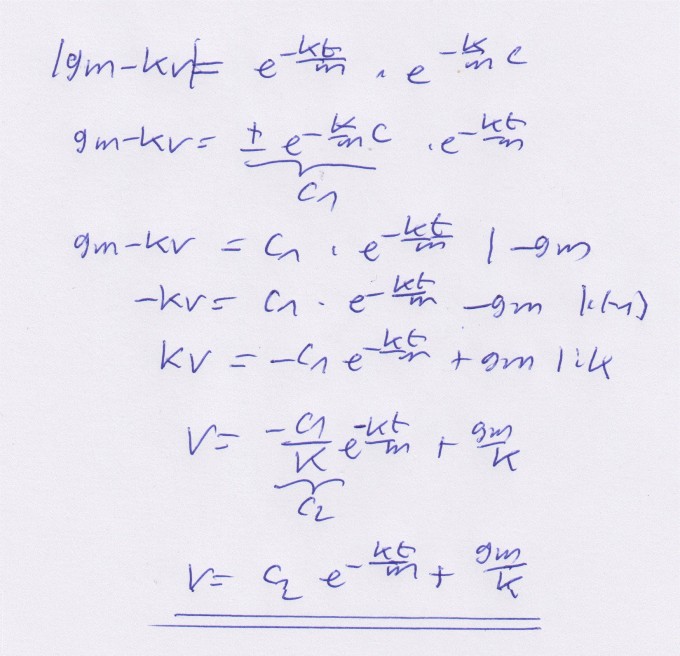 |gm-kv| = e^{-\frac{kt}{m}} · e^{-\frac{k}{m}c}
gm-kv = ± e^{-\frac{k}{m}c} · e^{-\frac{kt}{m}}
C₁
gm-kv = C₁ · e^{-\frac{kt}{m}} | -gm
-kv = C₁ · e^{-\frac{kt}{m}} - gm |·(-1)
kv = -C₁ e^{-\frac{kt}{m}} + gm |:k
V = \frac{-C₁}{K} e^{-\frac{kt}{m}} + \frac{gm}{k}
C₂
V = C₂ e^{-\frac{kt}{m}} + \frac{gm}{k}